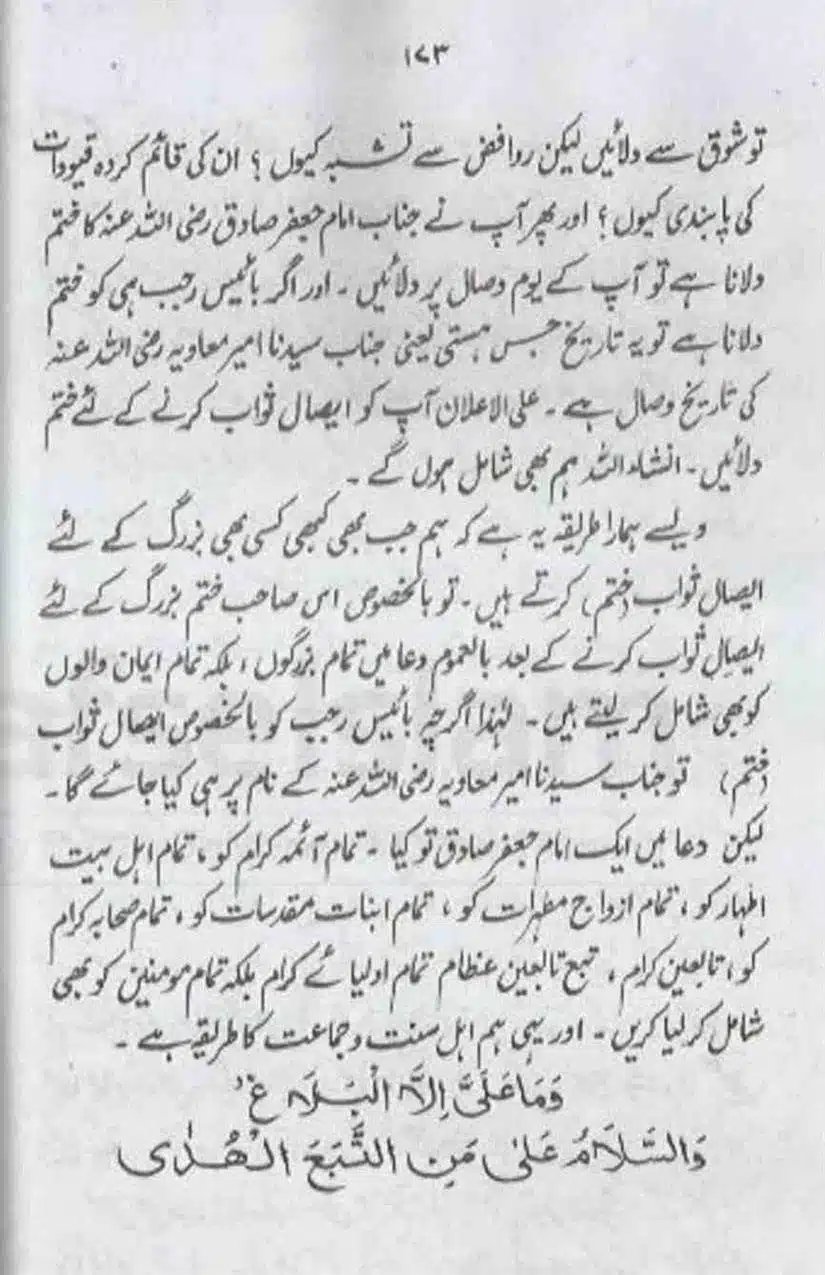 ۱۷۳
تو شوق سے دلائیں لیکن روافض سے تشبہ کیوں؟ ان کی قائم کردہ قیودات
کی پابندی کیوں؟ اور پھر آپ نے جناب امام جعفر صادق رضی اللہ عنہ کا ختم
دلانا ہے تو آپ کے یوم وصال پر دلائیں ۔ اور اگر بائیس رجب ہی کو ختم
دلانا ہے تو یہ تاریخ جس ہستی یعنی جناب سیدنا امیر معاویہ رضی اللہ عنہ
کی تاریخ وصال ہے ۔ علی الاعلان آپ کو ایصال ثواب کرنے کے لئے ختم
دلائیں ۔ انشاء اللہ ہم بھی شامل ہوں گے ۔
ویسے ہمارا طریقہ یہ ہے کہ ہم جب بھی کبھی کسی بھی بزرگ کے لئے
ایصال ثواب (ختم) کرتے ہیں ۔ تو بالخصوص اس صاحب ختم بزرگ کے لئے
ایصالِ ثواب کرنے کے بعد بالعموم دعا میں تمام بزرگوں ، بلکہ تمام ایمان والوں
کو بھی شامل کر لیتے ہیں ۔ لہٰذا اگرچہ بائیس رجب کو بالخصوص ایصال ثواب
(ختم) تو جناب سیدنا امیر معاویہ رضی اللہ عنہ کے نام پر ہی کیا جائے گا ۔
لیکن دعا میں ایک امام جعفر صادق تو کیا ۔ تمام آئمہ کرام کو ، تمام اہل بیت
اطہار کو ، تمام ازواج مطہرات کو ، تمام ابنات مقدسات کو ، تمام صحابہ کرام
کو ، تابعین کرام ، تبع تابعین عظام تمام اولیائے کرام بلکہ تمام مومنین کو بھی
شامل کر لیا کریں ۔ اور یہی ہم اہل سنت و جماعت کا طریقہ ہے ۔
وَمَا عَلَیَّ اِلَّا الْبَلَاغُ
وَالسَّلَامُ عَلٰی مَنِ التَّبَعَ الْهُدٰی